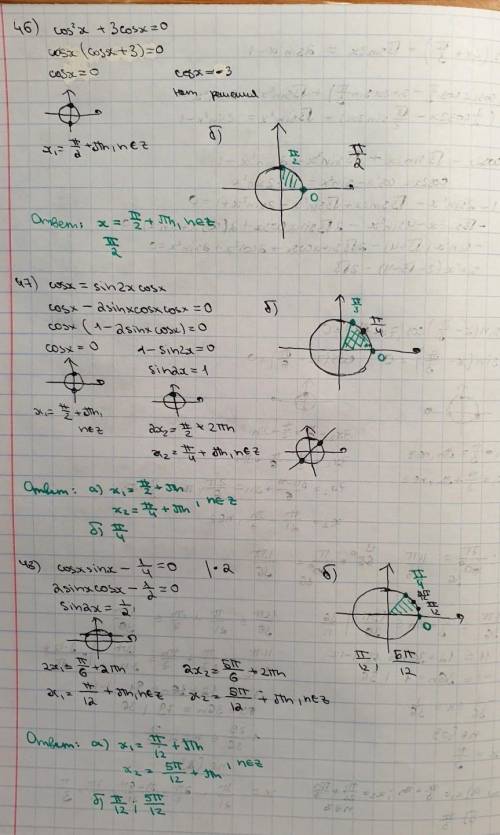 46) cos²x + 3cosx = 0
cosx (cosx + 3) = 0
cosx = 0 cosx = -3
нет решения
x₁ = π/2 + πn, n∈Z
б)
π/2 0 π/2
Ответ: x = π/2 + πn, n∈Z
π/2
47) cosx = sin2x cosx
cosx - 2sinxcosxcosx = 0
cosx (1 - 2sinxcosx) = 0
cosx = 0 1 - sin2x = 0
sin2x = 1
x₁ = π/2 + πn, n∈Z
2x₂ = π/2 + 2πn
x₂ = π/4 + πn, n∈Z
б)
π/3 π/4 0
Ответ: а) x₁ = π/2 + πn
x₂ = π/4 + πn, n∈Z
б) π/4
48) cosxsinx - 1/4 = 0 |·2
2sinxcosx - 1/2 = 0
sin2x = 1/2
2x₁ = π/6 + 2πn 2x₂ = 5π/6 + 2πn
x₁ = π/12 + πn, n∈Z x₂ = 5π/12 + πn, n∈Z
б)
π/4 π/12 0
π/12; 5π/12
Ответ: а) x₁ = π/12 + πn
x₂ = 5π/12 + πn, n∈Z
б) π/12; 5π/12